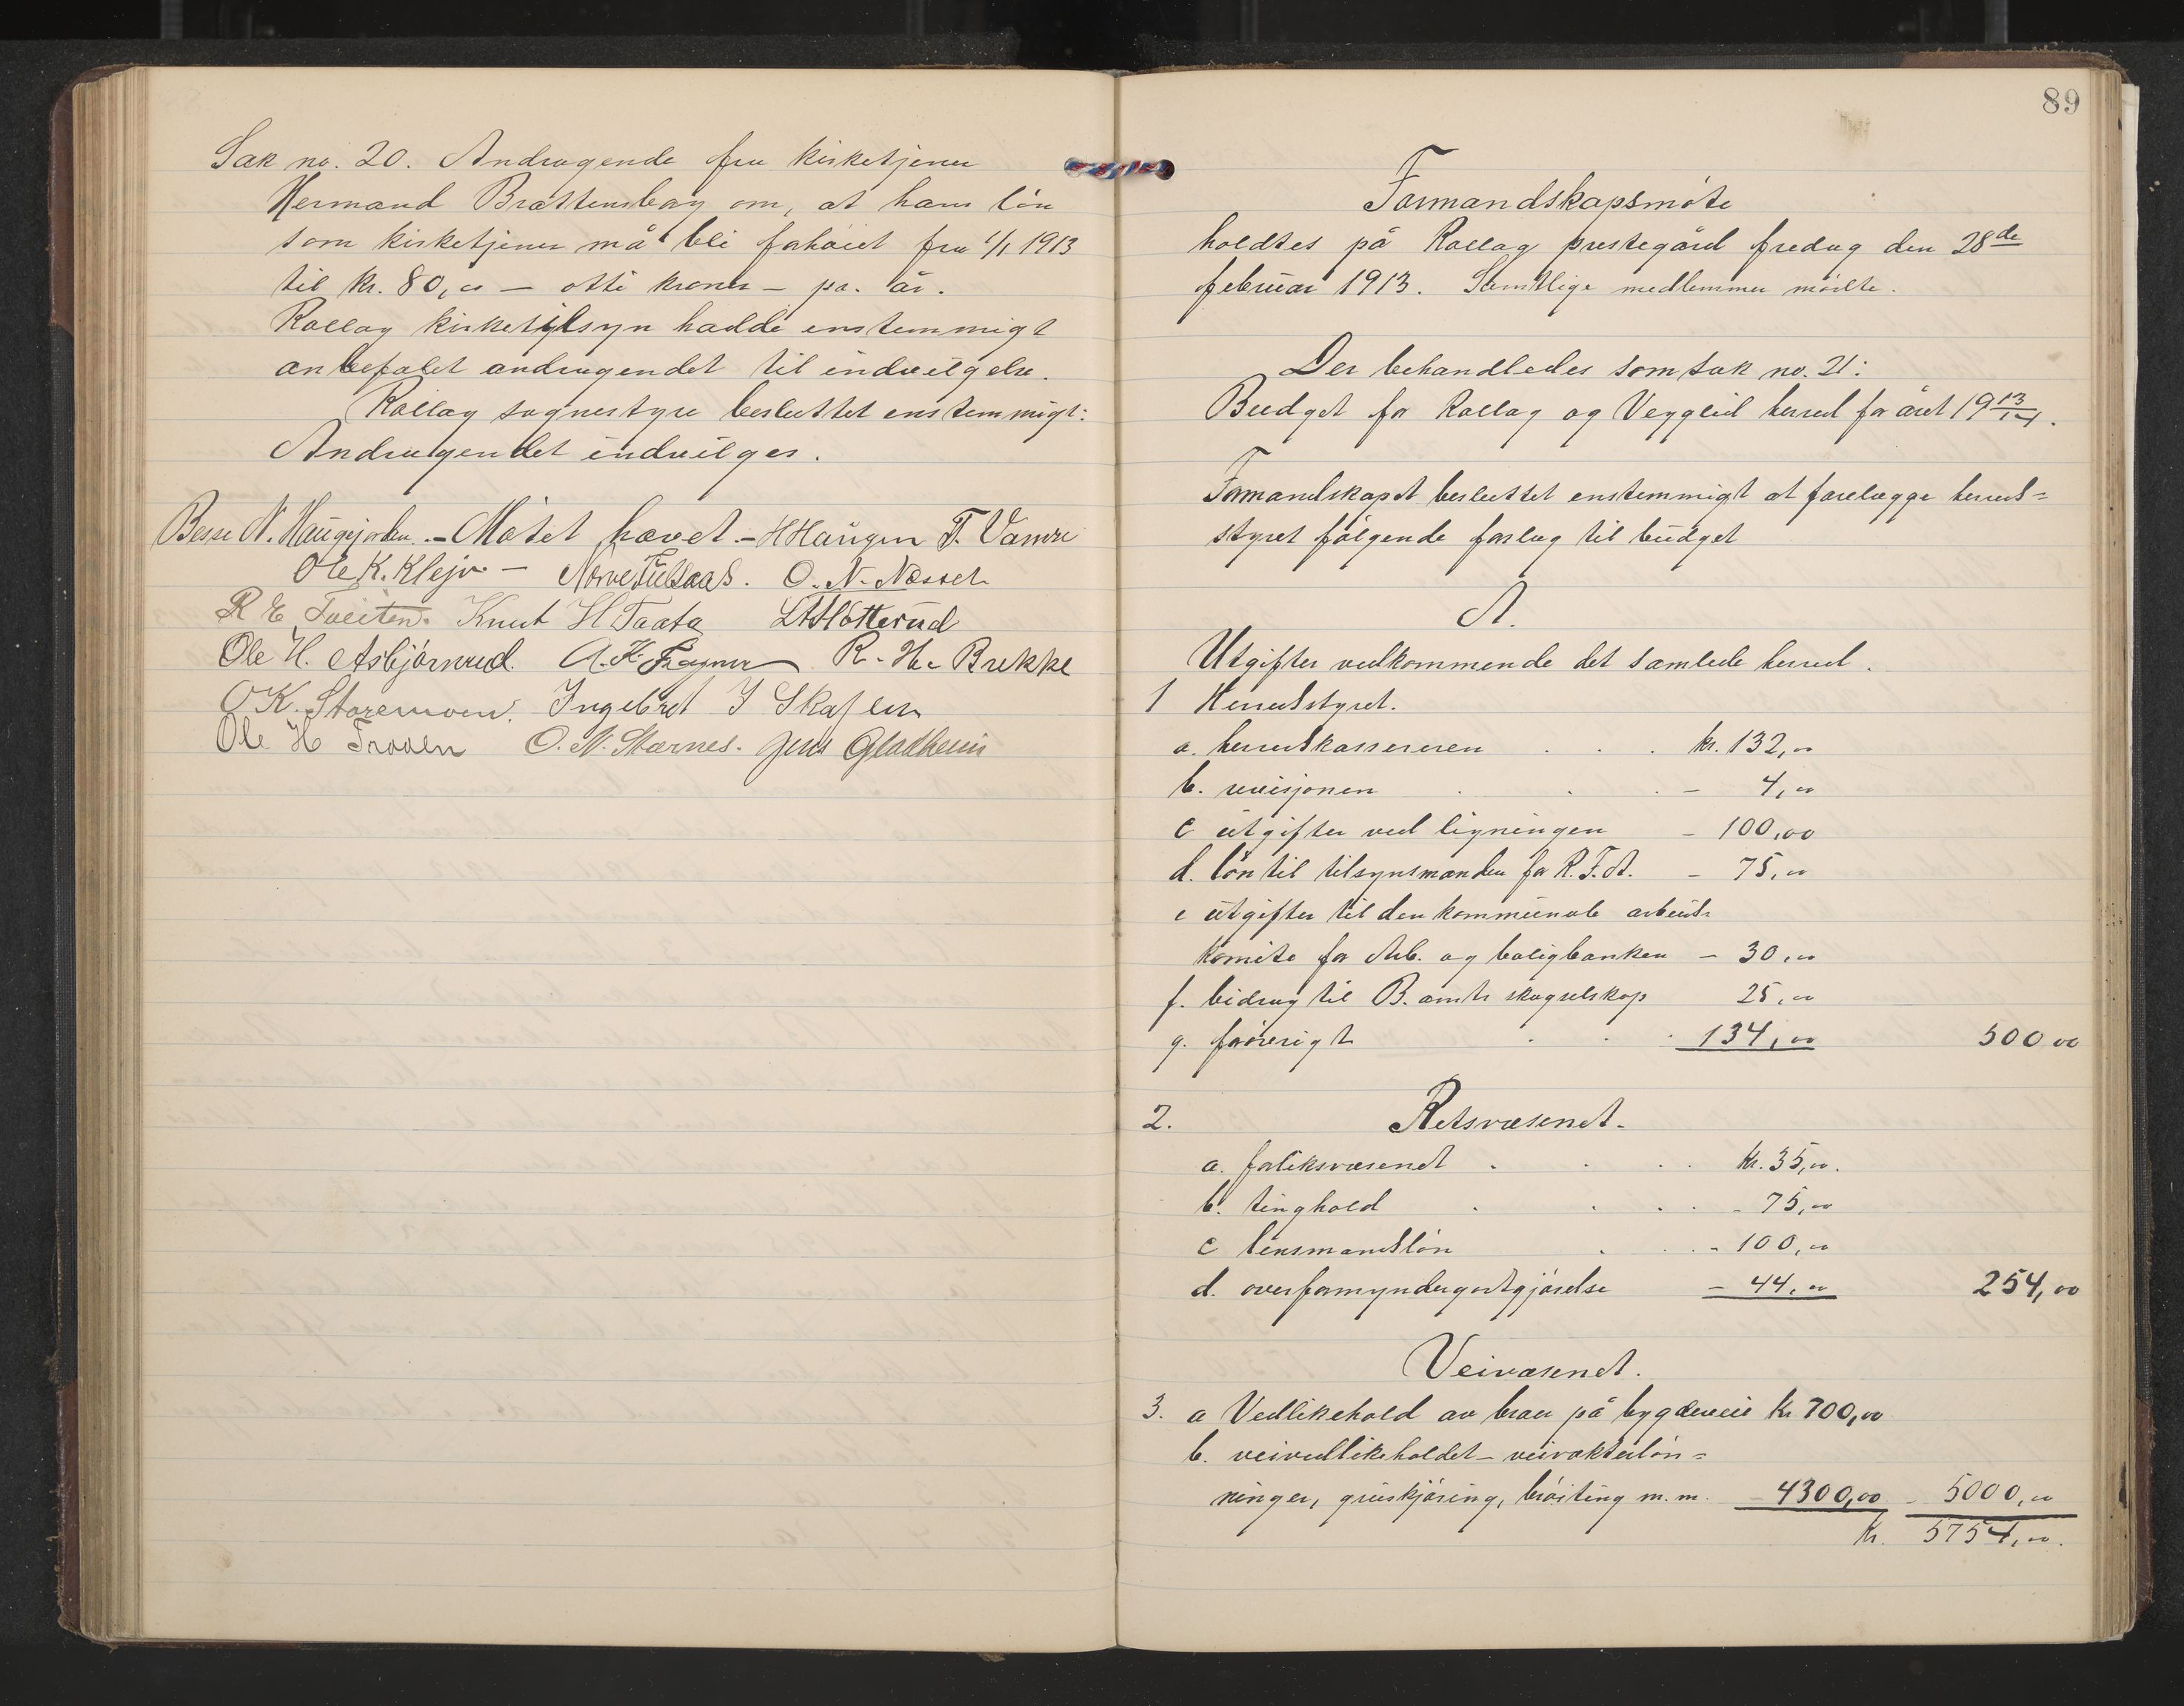 Sak no. 20. Andragende fra kirketjener
Hermand Brattensborg om, at hans løn
som kirketjener må bli forhøiet fra 1/1 1913
til kr. 80,00 — otti kroner — pr. år.
Rollag kirketilsyn hadde enstemmigt
anbefalet andragendet til indvilgelse.
Rollag sognestyre besluttet enstemmigt:
Andragendet indvilges.
N. Haugejorden. - Møtet hævet - H Haugen T.
Ole K. Klejv - O. N. Næsset
R E Tveiten. Knut H Taata
Ole H. Asbjørnrud. R. H. Brekke
O K. Storemoen. Ingebret J Skajem
Ole H Traaen O. N. Stærnes. Jens Gladheim
89
Formandskapsmøte
holdtes på Rollag prestegård fredag den 28de
februar 1913. Samtlige medlemmer møtte.
Der behandledes som sak no. 21:
Budget for Rollag og Veggli herred for året 1913/14.
Formandskapet besluttet enstemmigt at forelægge herreds=
styret følgende forslag til budget
A.
Utgifter vedkommende det samlede herred.
1 Herredsstyret.
a. herredskassereren . . . kr. 132,00
b. revisjonen . . . - 4,00
c utgifter ved ligningen - 100,00
d. løn til tilsynsmanden for R.F.A. - 75,00
e utgifter til den kommunale arbeids-
komite for Arb. og boligbanken - 30,00
f. bidrag til B. amts skogselskap 25,00
g. forøvrigt . . . 134,00 500 00
2. Retsvæsenet.
a. forliksvæsenet . . . . Kr. 35,00.
b. tinghold . . . . - 75,00
c lensmandsløn . . . - 100,00
d. overformyndergodtgjørelse - 44,00 254,00
Veivæsenet.
3. a Vedlikehold av broer på bygdeveie Kr 700,00
b. veivedlikeholdet - veivokterløn=
ninger, gruskjøring, brøiting m.m. - 4300,00 - 5000,00
Kr. 5754,00.